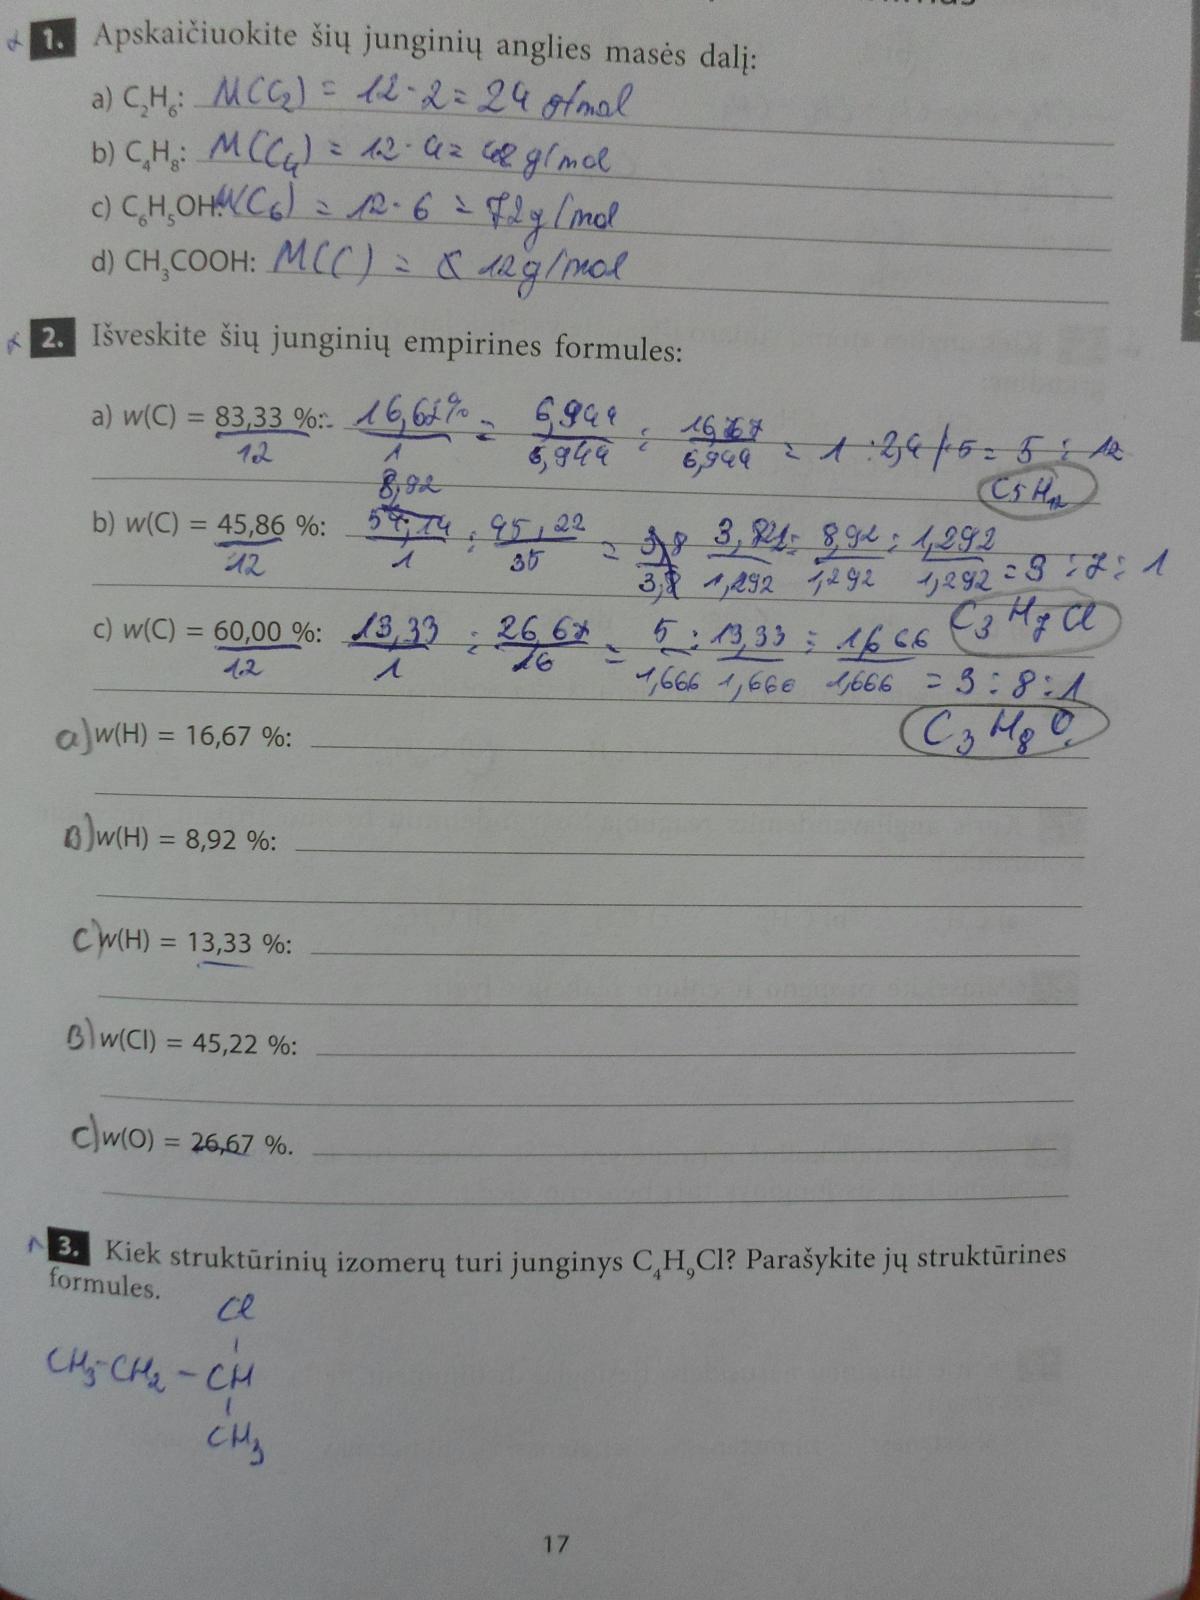 1. Apskaičiuokite šių junginių anglies masės dalį:
a) C₂H₆: M(C₂) = 12 · 2 = 24 g/mol
b) C₄H₈: M(C₄) = 12 · 4 = 48 g/mol
c) C₆H₅OH: M(C₆) = 12 · 6 = 72 g/mol
d) CH₃COOH: M(C) = 12 g/mol
2. Išveskite šių junginių empirines formules:
a) w(C) = 83,33 %: 16,67% = 6,944 : 16,67
12 1 6,944 6,944 = 1 : 2,4 | · 5 = 5 : 12
C5H12
8,92
b) w(C) = 45,86 %: 54,14 : 45,22 = 3,8 3,82 : 8,92 : 1,292
12 1 35 1,292 1,292 1,292 = 3 : 7 : 1
C₃H₇Cl
c) w(C) = 60,00 %: 13,33 : 26,67 = 5 : 13,33 : 1,666
12 1 16 1,666 1,666 1,666 = 3 : 8 : 1
C₃H₈O
a) w(H) = 16,67 %:
B) w(H) = 8,92 %:
C) w(H) = 13,33 %:
B) w(Cl) = 45,22 %:
C) w(O) = 26,67 %.
3. Kiek struktūrinių izomerų turi junginys C₄H₉Cl? Parašykite jų struktūrines
formules.
Cl
CH₃-CH₂-CH
CH₃
17